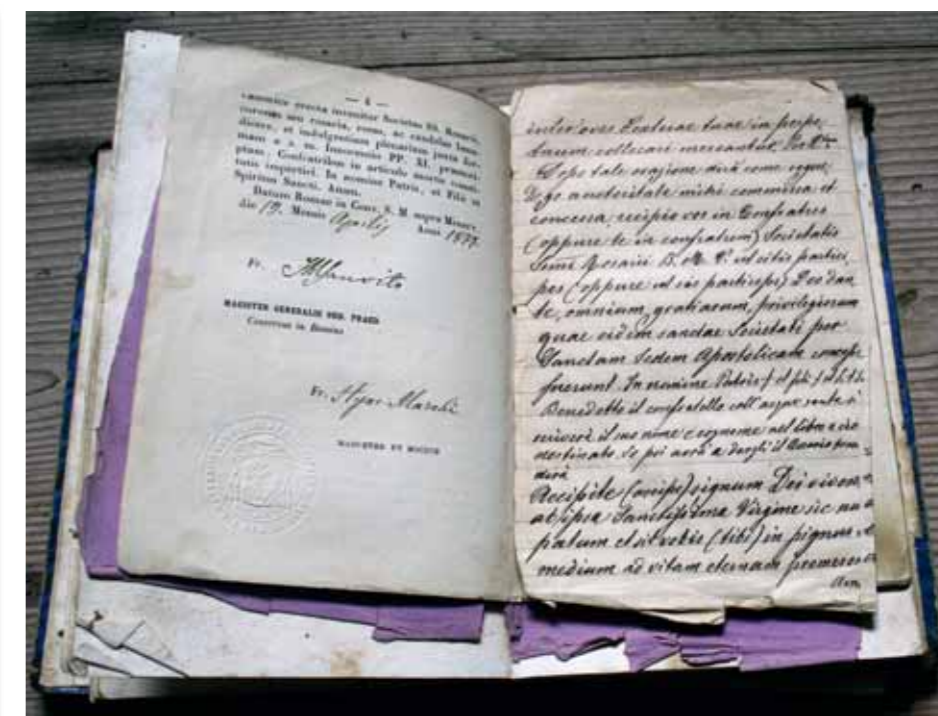 — 4 —
canonice erecta invenitur Societas SS. Rosarii,
coronas seu rosaria, rosas, ac candelas bene-
dicere, et indulgentiam plenariam juxta for-
mam a s. m. Innocentio PP. XI. praescri-
ptam, Confratribus in articulo mortis consti-
tutis impertiri. In nomine Patris, et Filii et
Spiritus Sancti. Amen.
Datum Romae in Conv. S. M. supra Minerv.
die 19. Mensis Aprilis Anni 1877.
Fr.
MAGISTER GENERALIS ORD. PRAED.
Fr. Marchi
MAGISTER ET SOCIUS
inter oves
trnum collocari mereantur.
Dopo tale orazione dirà come segue
Ego auctoritate mihi commissa et
concessa recipio vos in Confratres
(oppure te in confratrem) Societatis
Rosarii B. M. V. ut sitis partici-
pes (oppure ut sis particeps) Deo dan-
te, omnium, gratiarum, privilegiorum
quae eidem sanctae Societati per
Sanctam Sedem Apostolicam
fuerunt. In nomine Patris
Benedetto il confratello coll'acqua santa
scriverà il suo nome e cognome nel libro
destinato. Se poi avrà a dargli il
dirà
Accipite (accipe) signum Dei
ab ipsa Sanctissima Virgine sic
patum et sit vobis (tibi) in pignus
medium ad vitam eternam